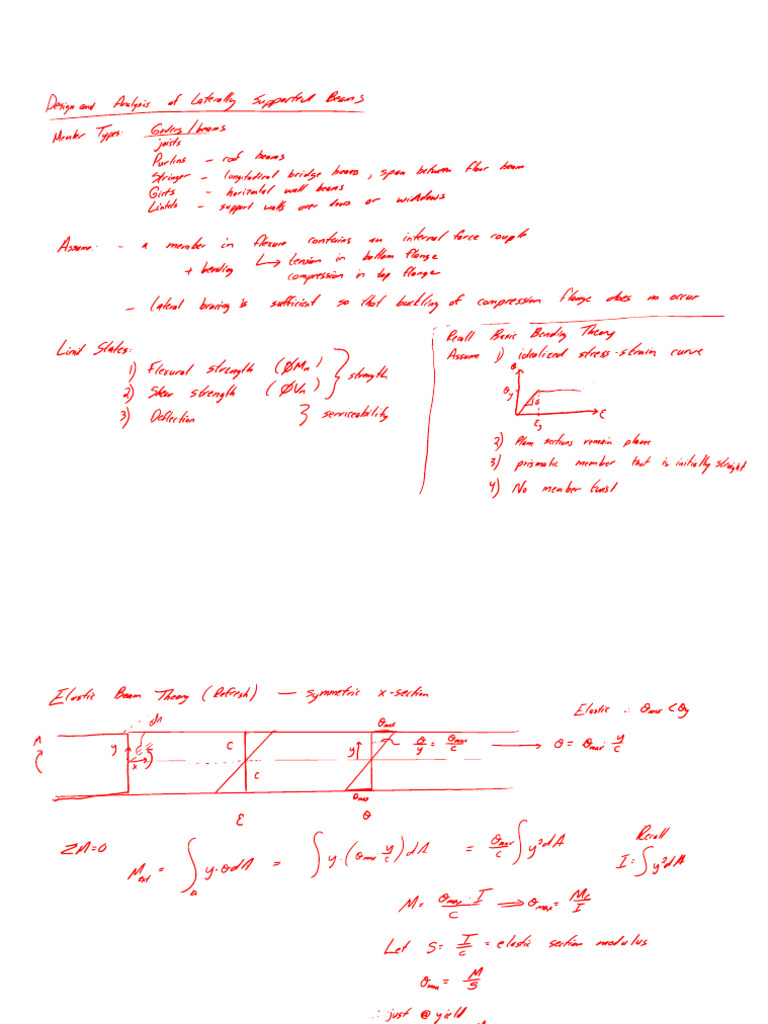 Design and Analysis of Laterally Supported Beams
Member Types: Girders/beams
joists
Purlins - roof beams
Stringer - longitudinal bridge beams, span between floor beam
Girts - horizontal wall beams
Lintels - support walls over doors or windows
Assume: - a member in flexure contains an internal force couple
+ bending ↳ tension in bottom flange
compression in top flange
- lateral bracing is sufficient so that buckling of compression flange does no occur
Limit States:
1) Flexural strength (ØMn)
2) Shear strength (ØVn) } strength
3) Deflection } serviceability
Recall Basic Bending Theory
Assume 1) idealized stress-strain curve
σ
σy
E
εy
ε
2) Plane sections remain plane
3) prismatic member that is initially straight
4) No member twist
Elastic Beam Theory (Refresh) - symmetric x-section
Elastic ∴ σmax < σy
dA
M
y
x
c
c
ε
σmax
y
σmax
σ
σ/y = σmax/c → σ = σmax · y/c
ΣM=0
Mext = ∫A y·σdA = ∫y·(σmax y/c)dA = σmax/c ∫y²dA
Recall
I = ∫y²dA
M = σmax · I/c ⟹ σmax = Mc/I
Let S = I/c = elastic section modulus
σmax = M/S
∴ just @ yield